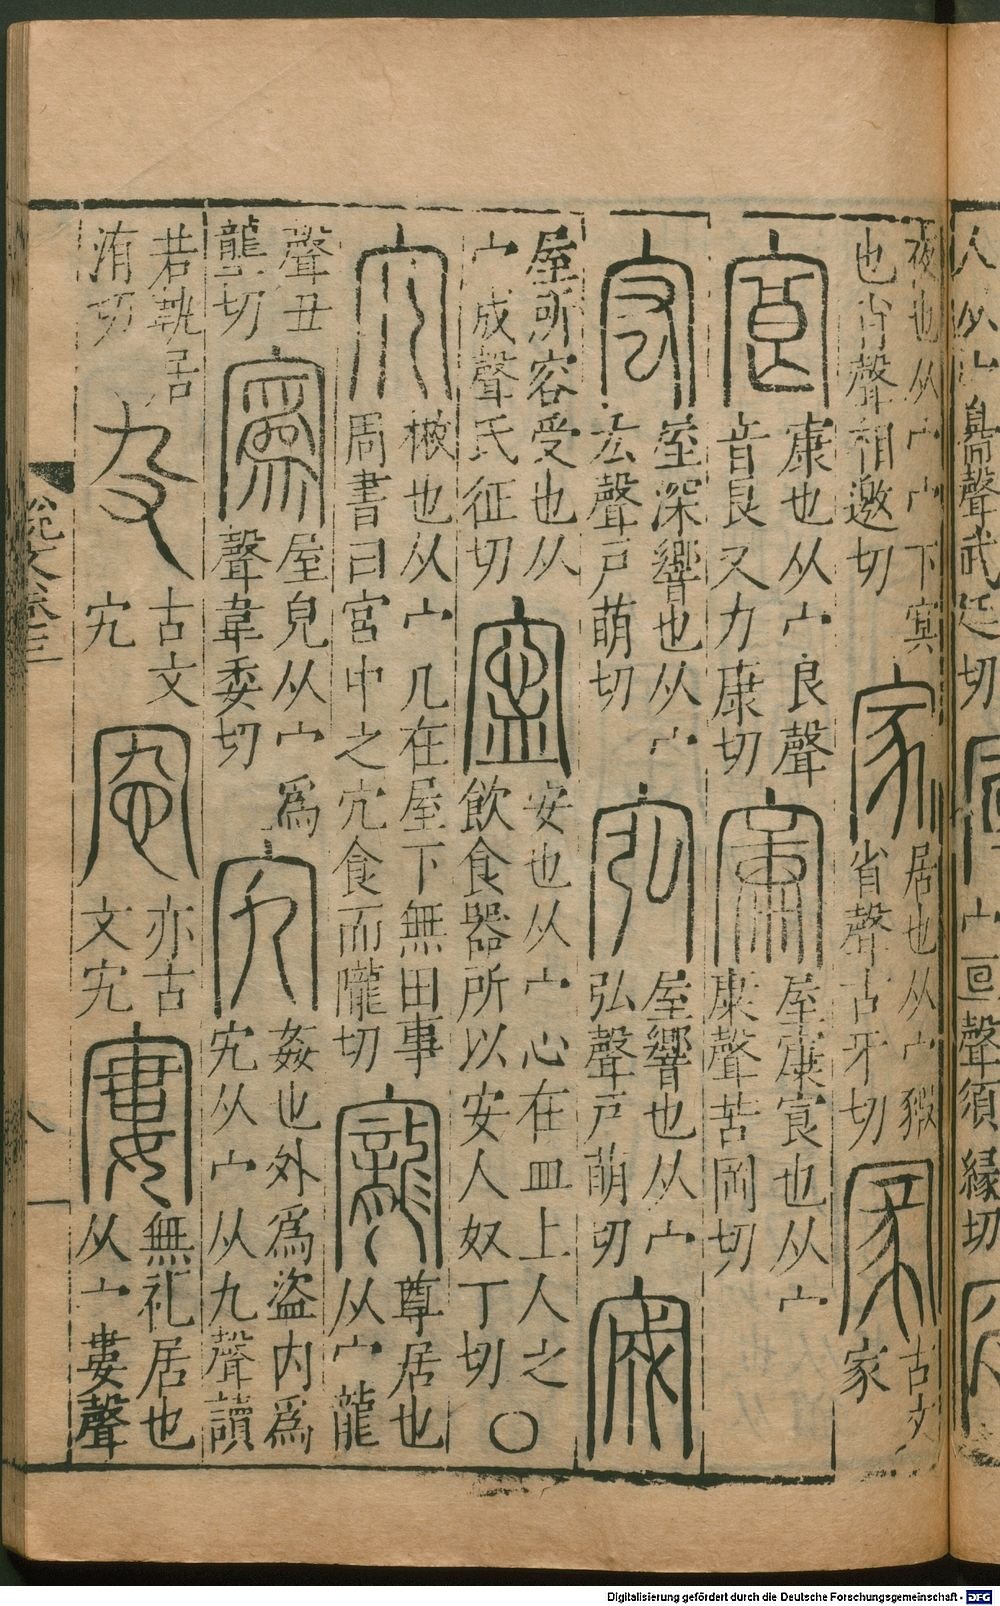 聲武延切
宀亘聲須緣切
夜也从宀宀下冥
也肖聲相邀切
家
居也从宀豭
省聲古牙切
古文
家
㝗
康也从宀良聲
音良又力康切
康
屋康㝗也从宀
康聲苦岡切
宏
屋深響也从宀
厷聲戶萌切
宖
屋響也从宀
弘聲戶萌切
宬
屋所容受也从
宀成聲氏征切
寍
安也从宀心在皿上人之
飲食器所以安人奴丁切
〇
宂
㮇也从宀几在屋下無田事
周書曰宮中之宂食而隴切
寵
尊居也
从宀龍
聲丑
壟切
寪
屋皃从宀爲
聲韋委切
宄
姦也外爲盜内爲
宄从宀从九聲讀
若軌居
洧切
古文
宄
亦古
文宄
寠
無礼居也
从宀婁聲
說文卷三
Digitalisierung gefördert durch die Deutsche Forschungsgemeinschaft - DFG